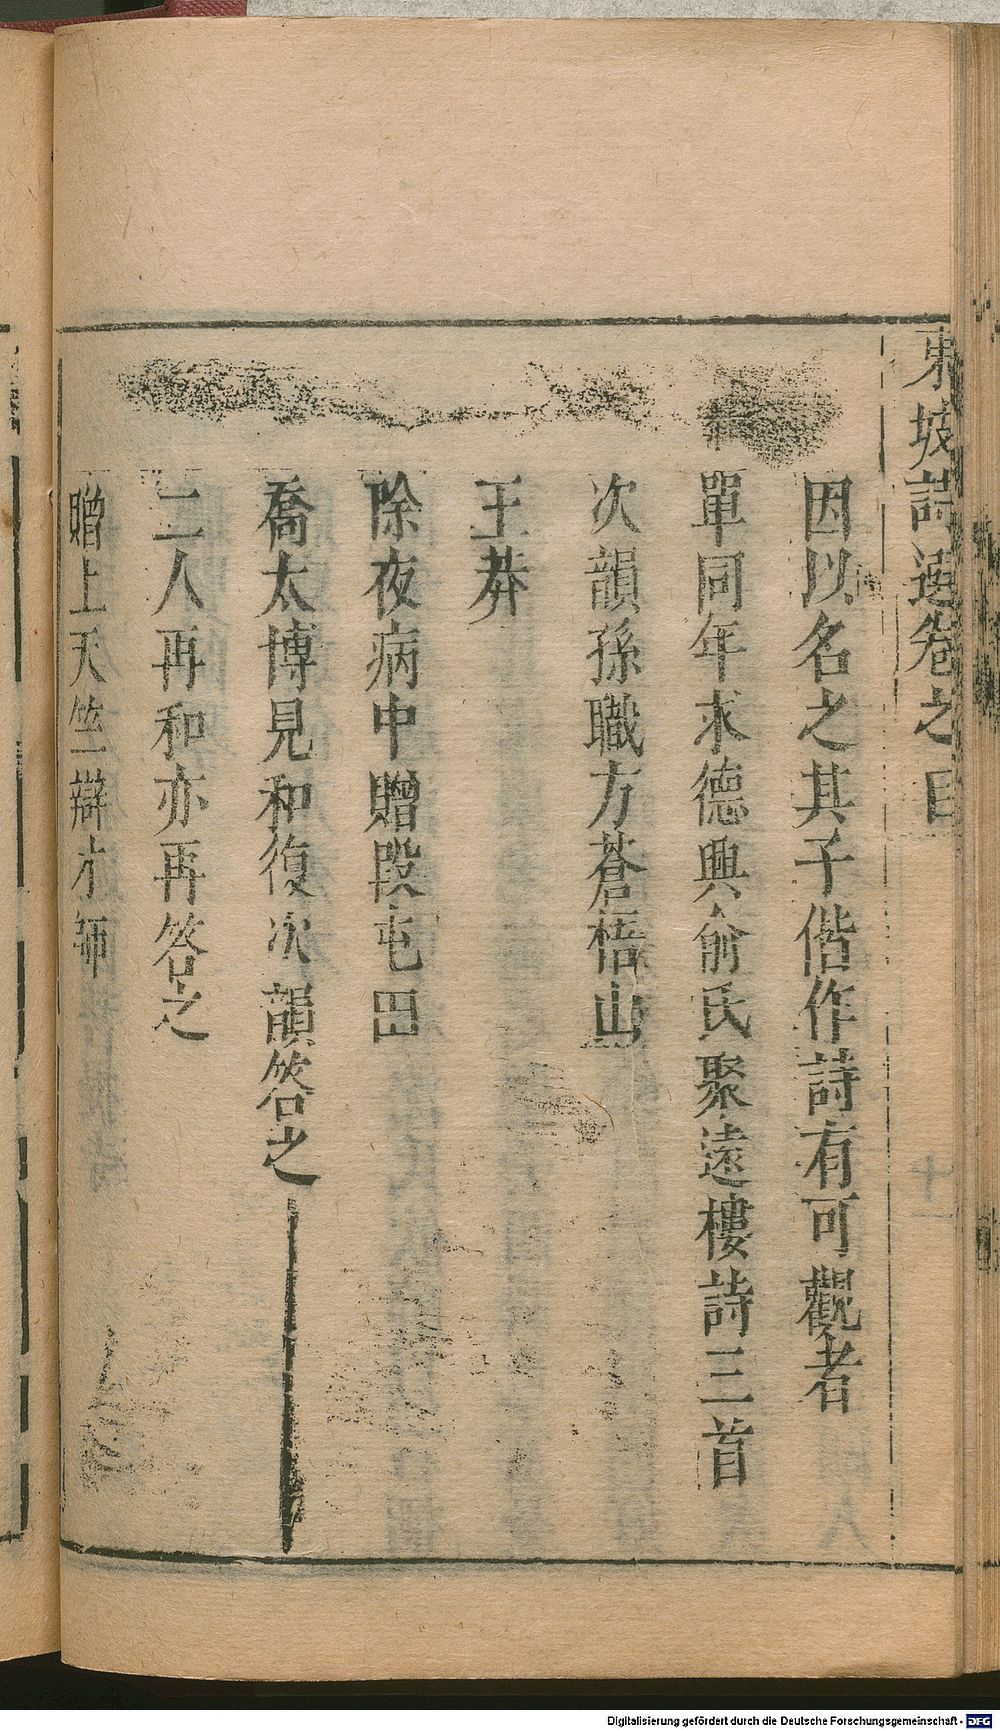 東坡詩選卷之目
十一
因以名之其子偕作詩有可觀者
單同年求德興俞氏聚遠樓詩三首
次韻孫職方蒼梧山
王莽
除夜病中贈段屯田
喬太博見和復次韻答之
二人再和亦再答之
贈上天竺辯才師
Digitalisierung gefördert durch die Deutsche Forschungsgemeinschaft - DFG